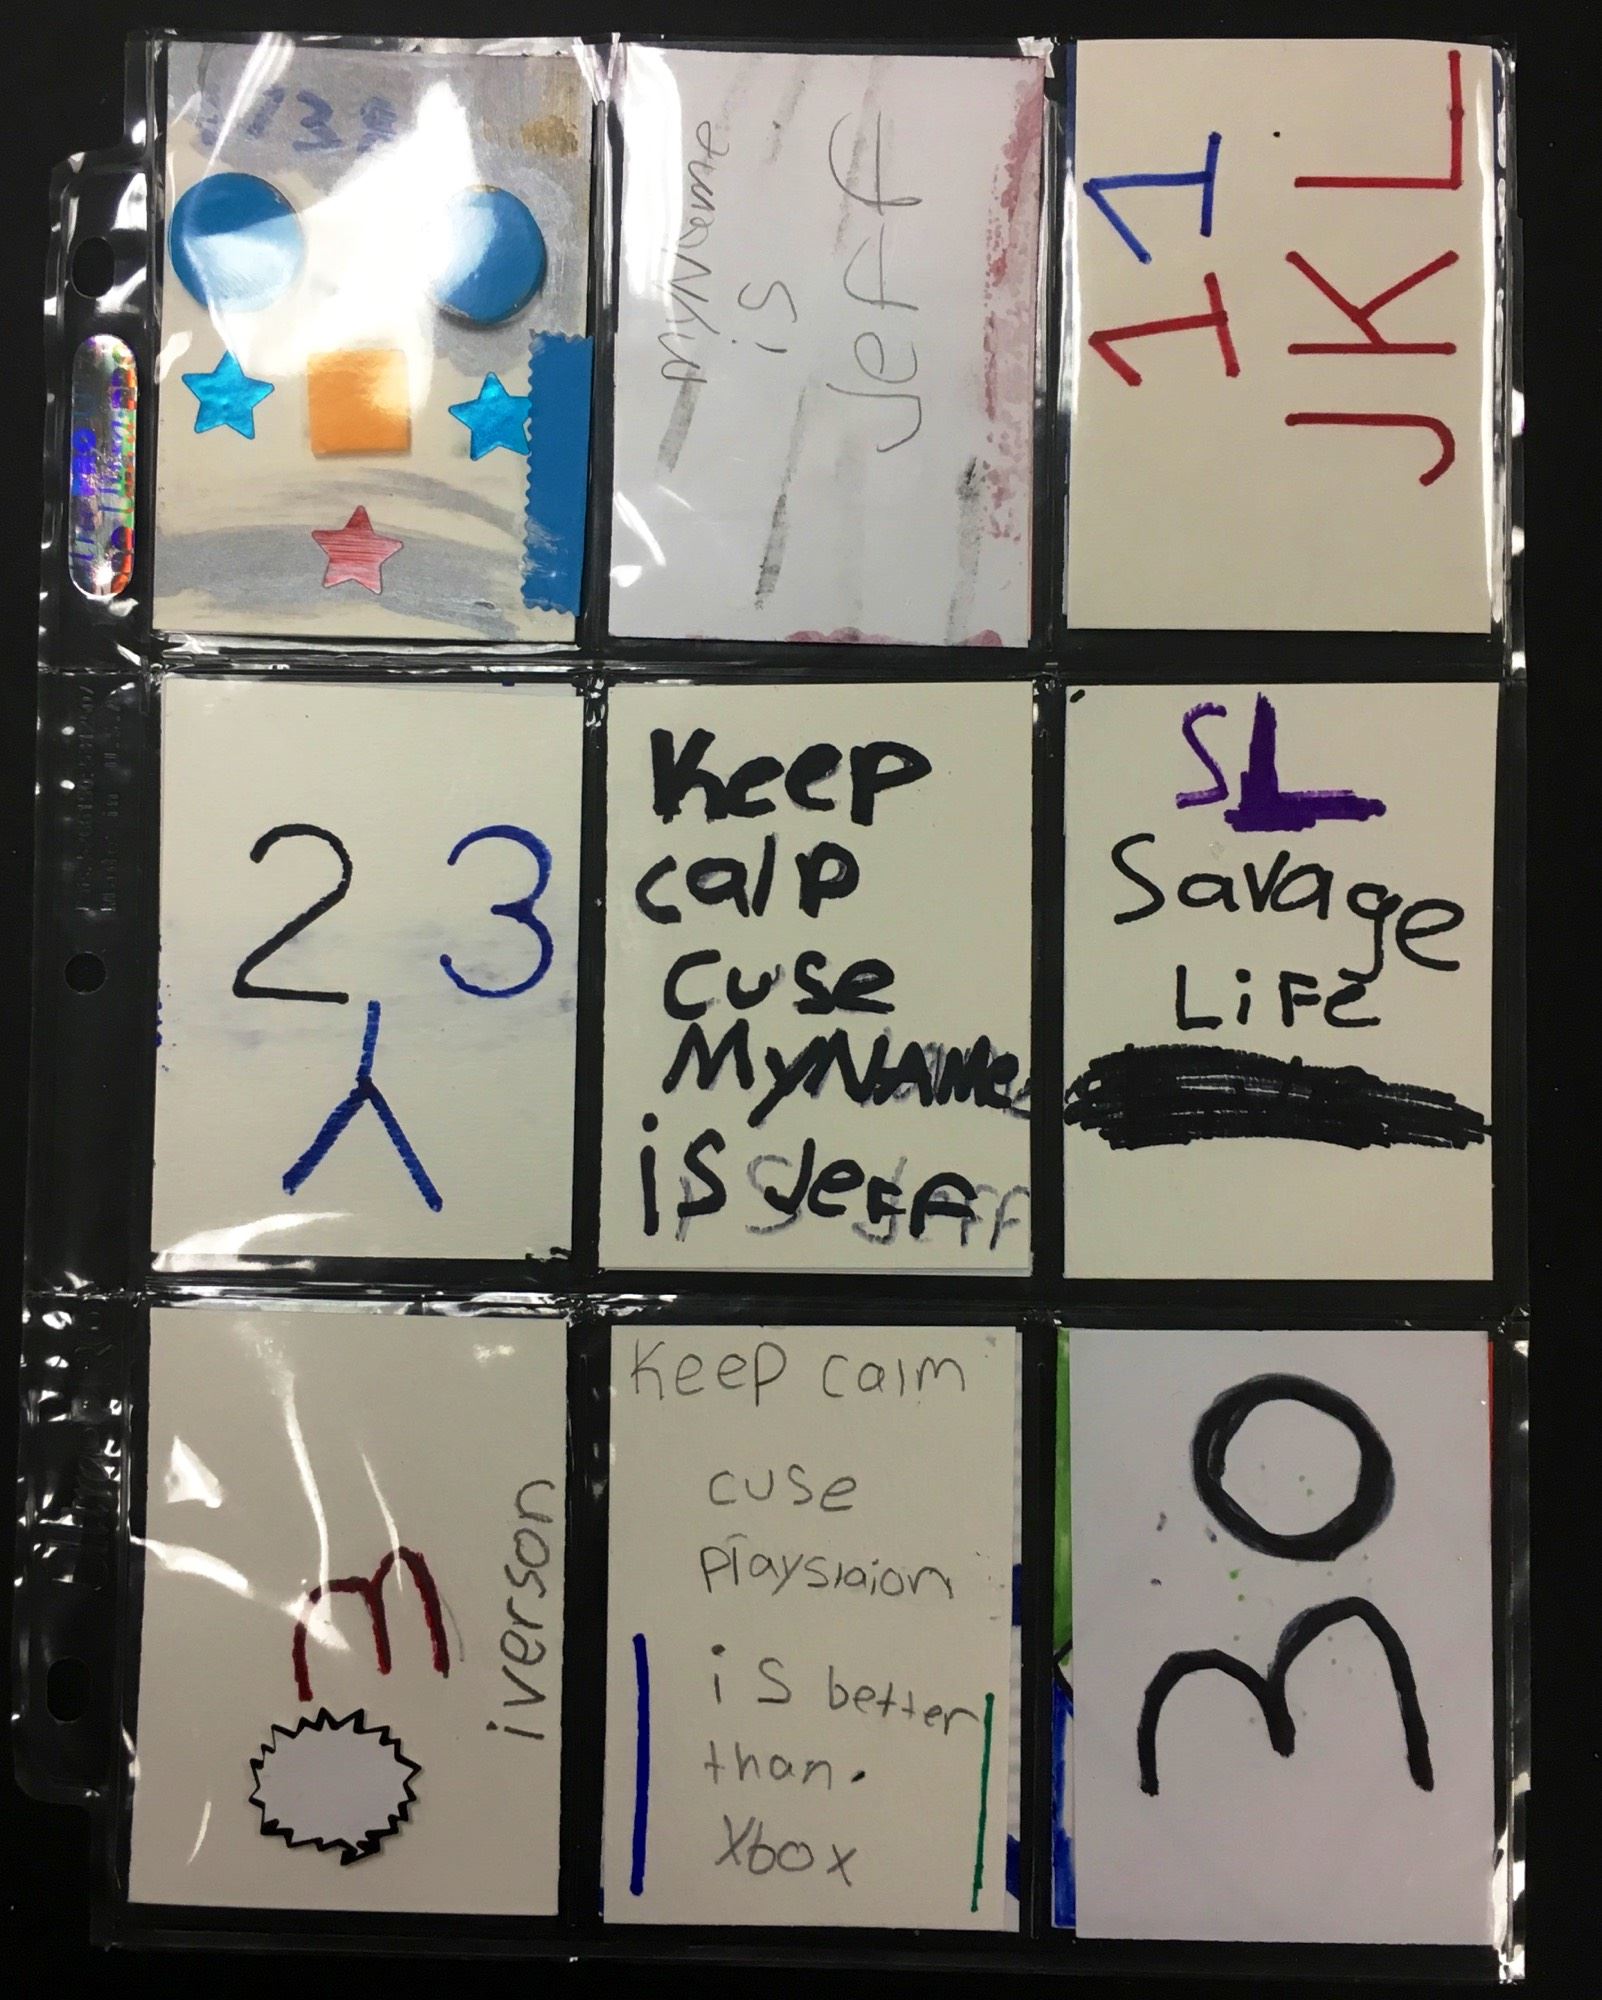 My Name
is
Jeff
11
JKL
2 3
Keep
calp
cuse
My NAMe
is Jeff
SL
Savage
LiFe
iverson
3
Keep calm
cuse
Playsiaion
is better
than.
Xbox
30